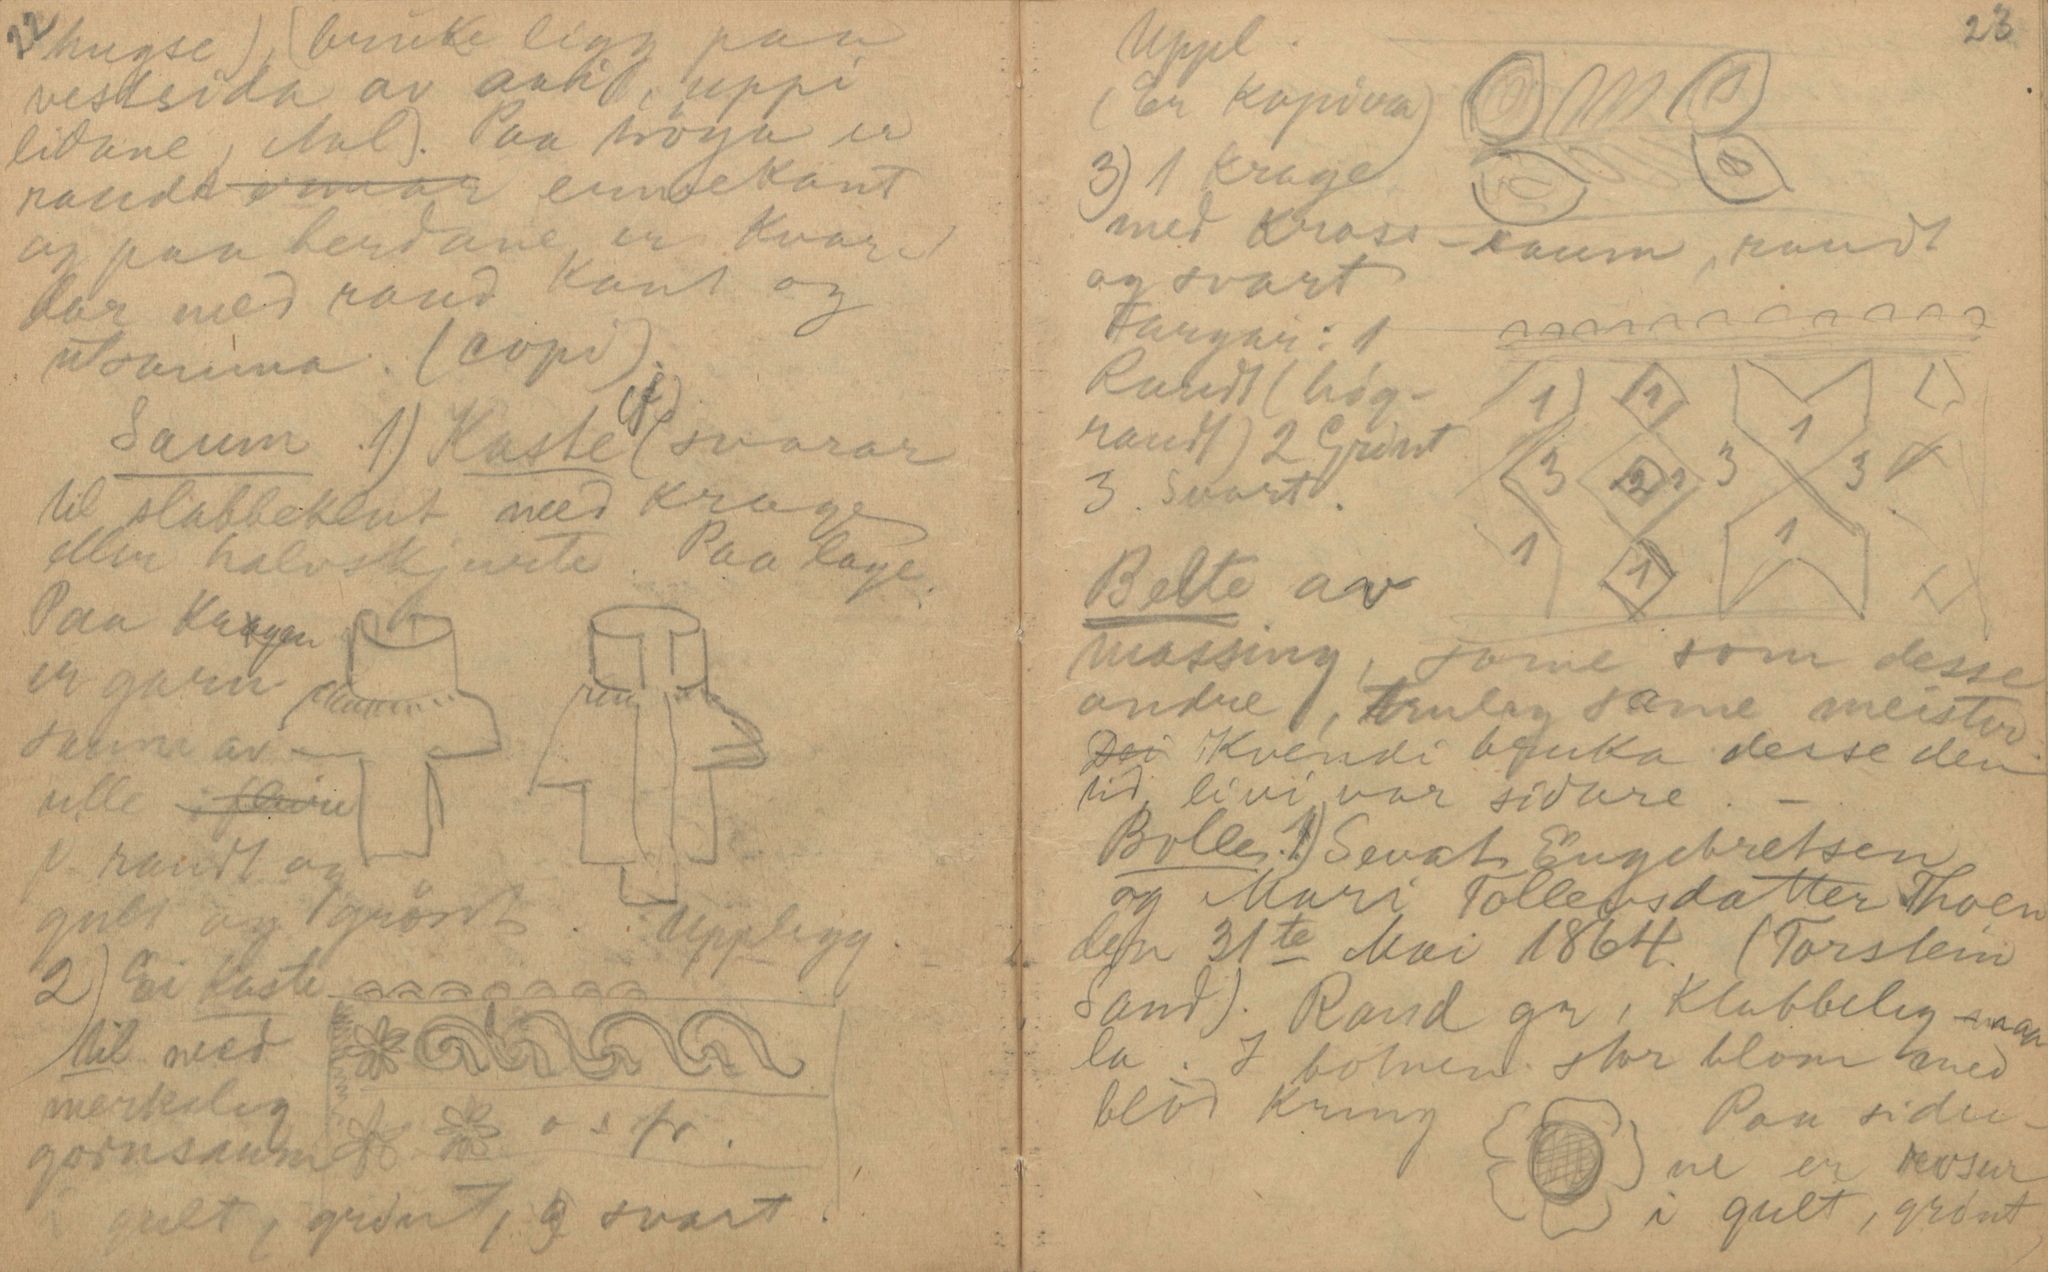 22
hugse), (bruke ligg paa
vestsida av aasi, uppi
lidane, Aal). Paa tröya er
raudt ermekant
og paa herdane er kvar
dar med raud kant og
utsauma. (copi).
Saum 1) Kaste (f) (svarar
til slabbeklut med krage
eller halvskjurte. Paa lage.
Paa Kragen
er garn
saum av
ulle
i raudt og
gult og grönt. Upplegg.
2) Ei kaste
til med
merkeleg
garnsaum
o s fr.
gult, grönt, og svart.
23
Uppl.
(Er kopiva)
3) 1 Krage
med Kross-saum, raudt
og svart
Fargar: 1
Raudt (hög-
raudt) 2 Grönt
3 Svart.
1 1 1
3 2 1 3 3
1 1 1
Belte av
massing, same som desse
andre, truleg same meister.
Dei Kvendi bruka desse den
tid livi var sidare. –
Bolle. 1) Sevat Engebretsen
og Mari Tollevsdatter Thoen
den 31te Mai 1864. (Torstein
Sand). Raud gr, Klabbeleg maa
la. I botnen stor blom med
blöd kring Paa sidu-
ne er rosur
i gult, grönt,